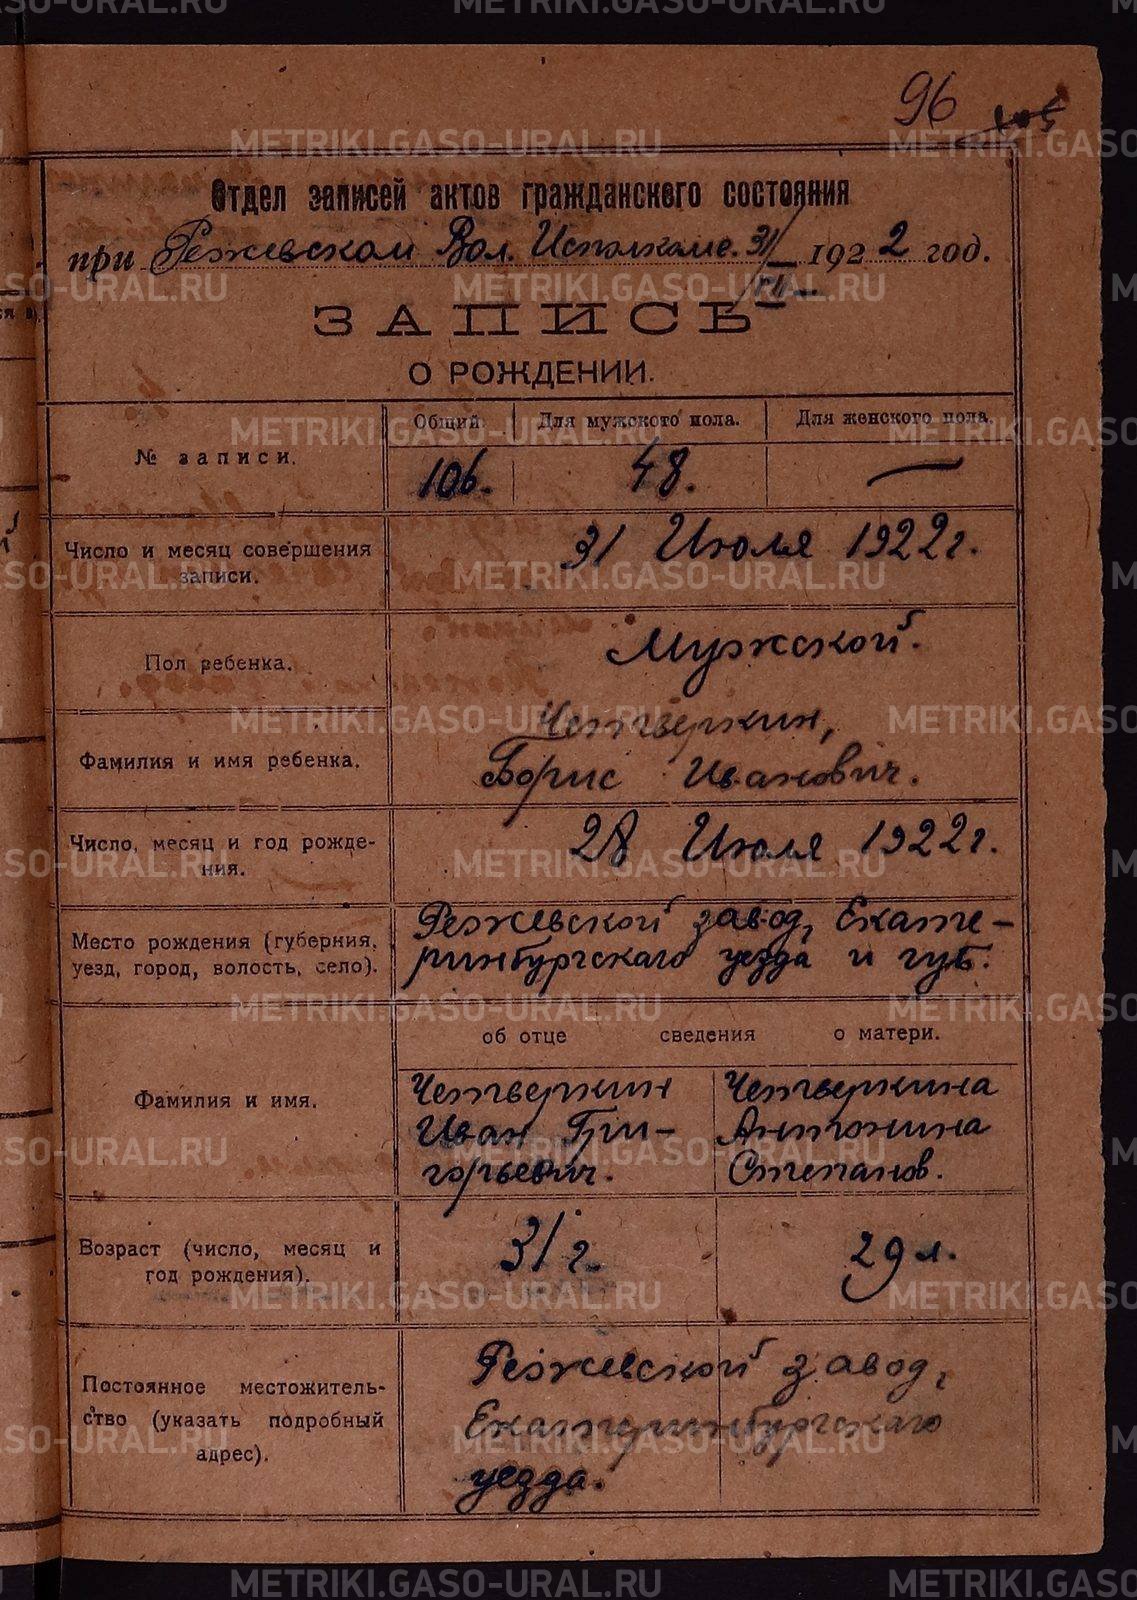 96
Отдел записей актов гражданского состояния
при Режевском Вол. Исполкоме. 31/VII 1922 год.
ЗАПИСЬ
О РОЖДЕНИИ.
№ записи.
Общий. Для мужского пола. Для женского пола.
106. 48. —
Число и месяц совершения
записи.
31 Июля 1922 г.
Пол ребенка.
Мужской.
Фамилия и имя ребенка.
Четверкин,
Борис Иванович.
Число, месяц и год рожде-
ния.
28 Июля 1922 г.
Место рождения (губерния,
уезд, город, волость, село).
Режевской завод, Екате-
ринбургскаго уезда и губ.
об отце сведения о матери.
Фамилия и имя.
Четверкин
Иван Гри-
горьевич.
Четверкина
Антонина
Степанов.
Возраст (число, месяц и
год рождения).
31 г.
29 л.
Постоянное местожитель-
ство (указать подробный
адрес).
Режевской завод,
Екатеринбургскаго
уезда.
METRIKI.GASO-URAL.RU